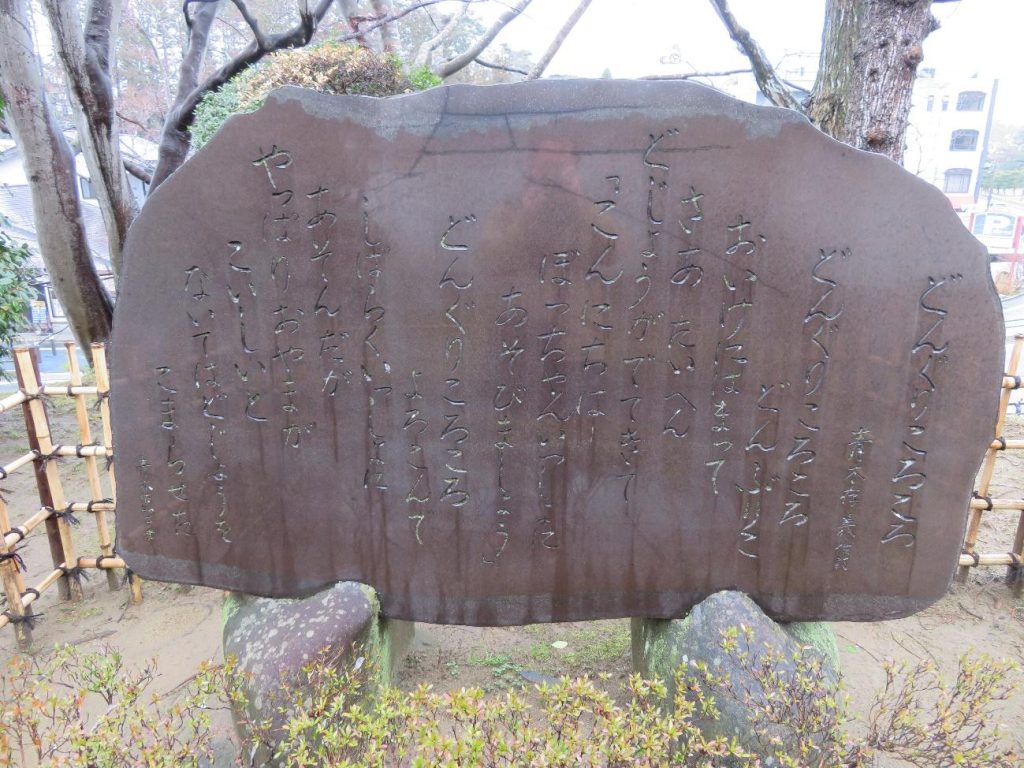 どんぐりころころ
青木存義
どんぐりころころ
どんぶりこ
おいけにはまって
さあ たいへん
どじょうがでてきて
「こんにちは
ぼっちゃんいっしょに
あそびましょう」
どんぐりころころ
よろこんで
しばらくいっしょに
あそんだが
やっぱりおやまが
こいしいと
ないてはどじょうを
こまらせた